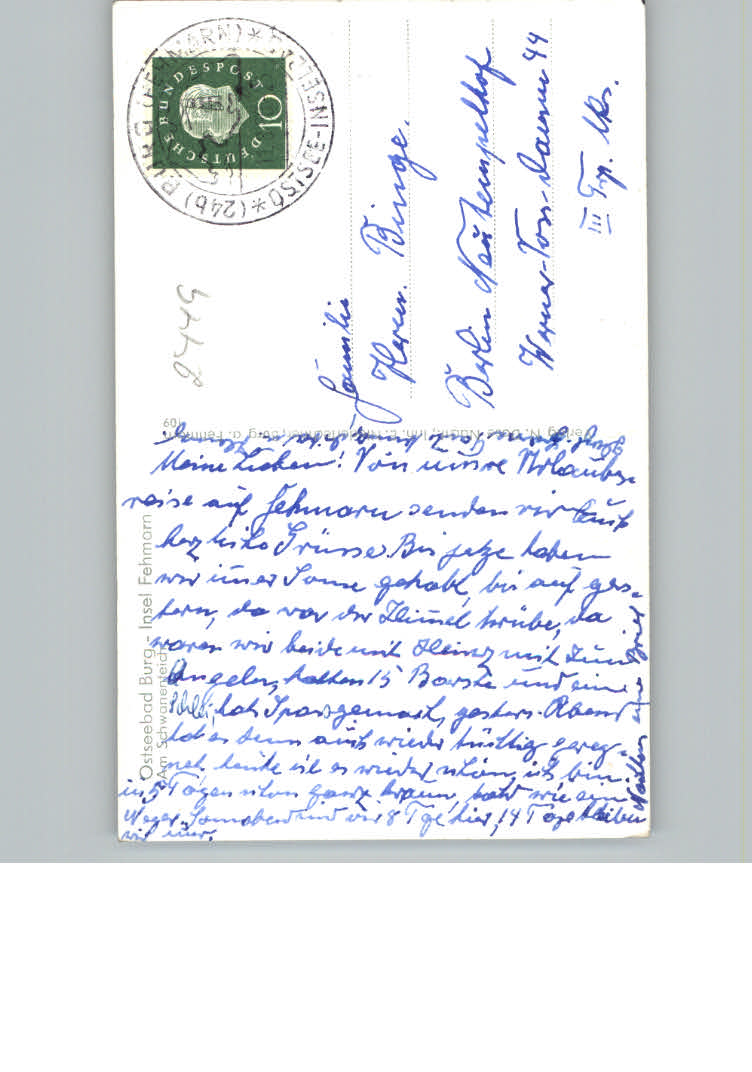 (24b) BURG (FEHMARN) * OSTSEE-INSELBAD *
DEUTSCHE BUNDESPOST
10
Familie
Herm. Binge.
Berlin Neu Tempelhof
Werner-Voss-Damm 44
III Trp. lks.
Ostseebad Burg - Insel Fehmarn
Am Schwanenteich
109
Meine Lieben! Von unsre Urlaubs
reise auf Fehmarn senden wir Euch
herzliche Grüsse. Bis jetze haben
wir imer Sonne gehabt, bis auf ges-
tern, da war der Himel trübe, da
waren wir beide mit Heinz mit zum
Angeln, hatten 15 Barsche und eine
hat Spas gemacht, gestern Abend
hat es denn auch wieder tüchtig gereg-
net, heute ist es wieder schön, ich bin
in 5 Tagen schon ganz braun, bald wie ein
Neger. Sonnabend sind wir 8 Tge hier, 14 Tage bleiben
wir nur.